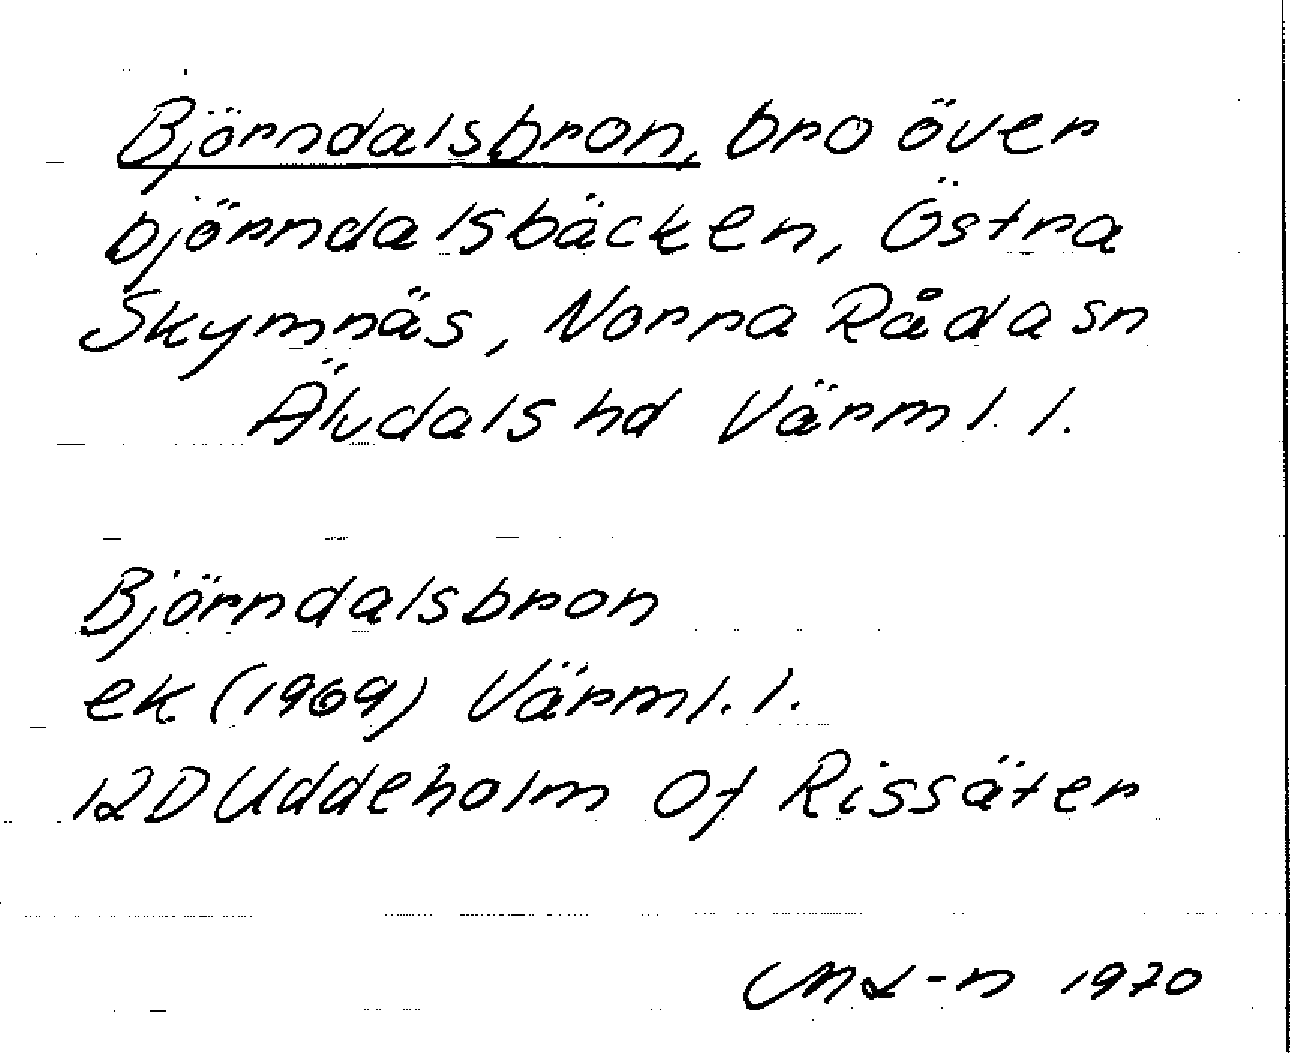 Björndalsbron, bro över
björndalsbäcken, Östra
Skymnäs, Norra Råda sn
Älvdals hd Värml. l.
Björndalsbron
ek (1969) Värml. l.
12D Uddeholm 0f Rissäter
1970